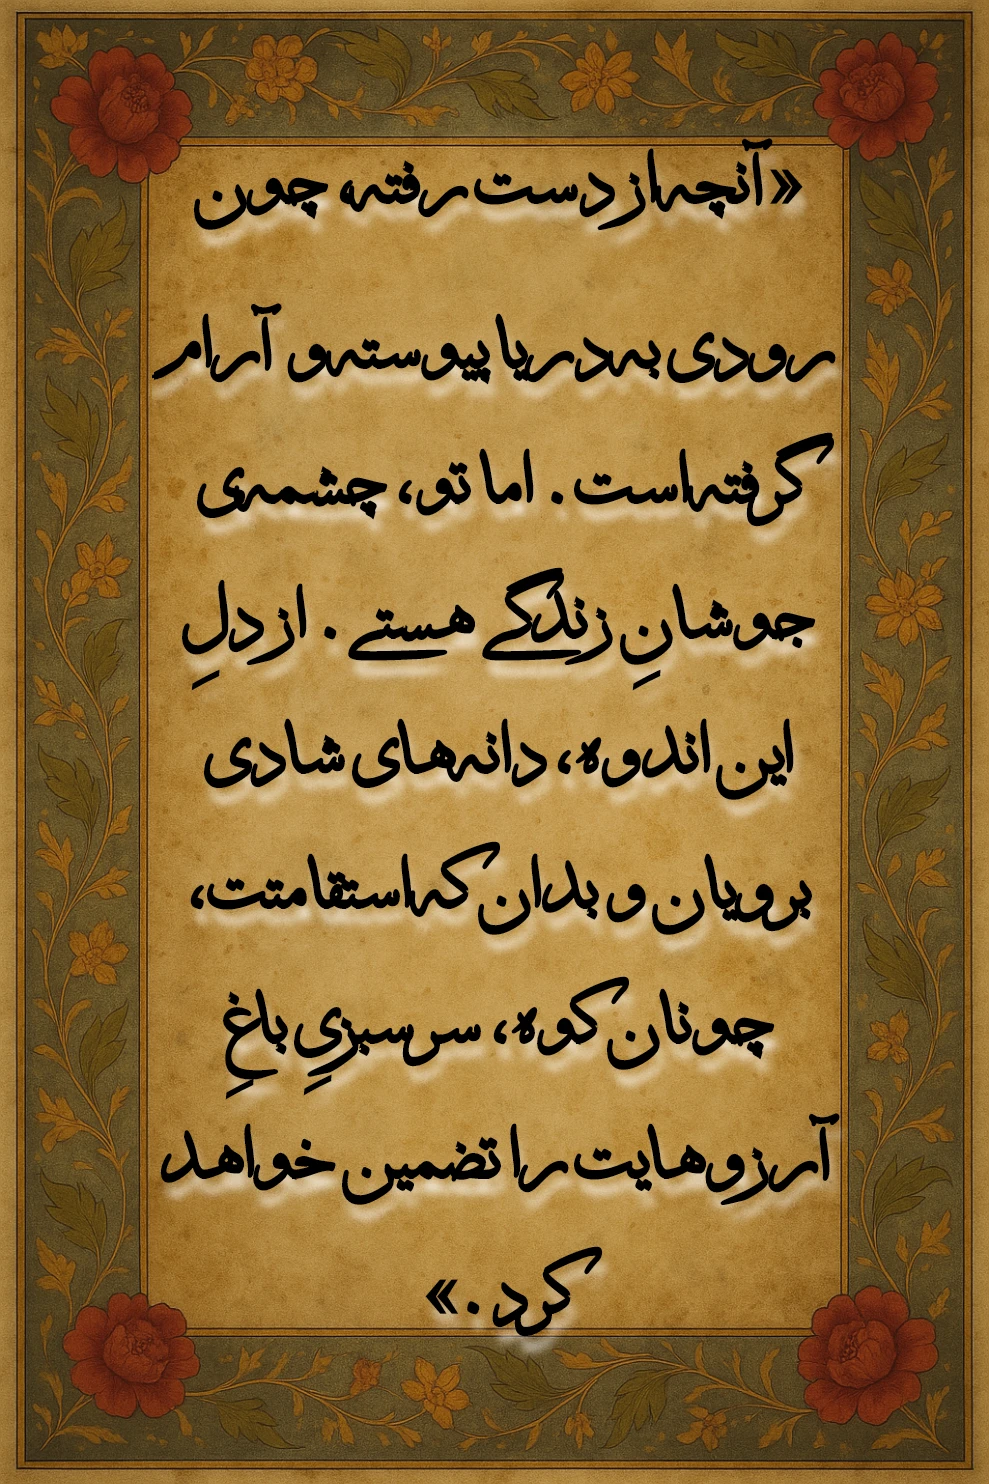 «آنچه از دست رفته، چون
رودی به دریا پیوسته و آرام
گرفته است. اما تو، چشمه‌ی
جوشانِ زندگی هستی. از دلِ
این اندوه، دانه‌های شادی
برویان و بدان که استقامتت،
چونان کوه، سرسبزیِ باغِ
آرزوهایت را تضمین خواهد
کرد.»